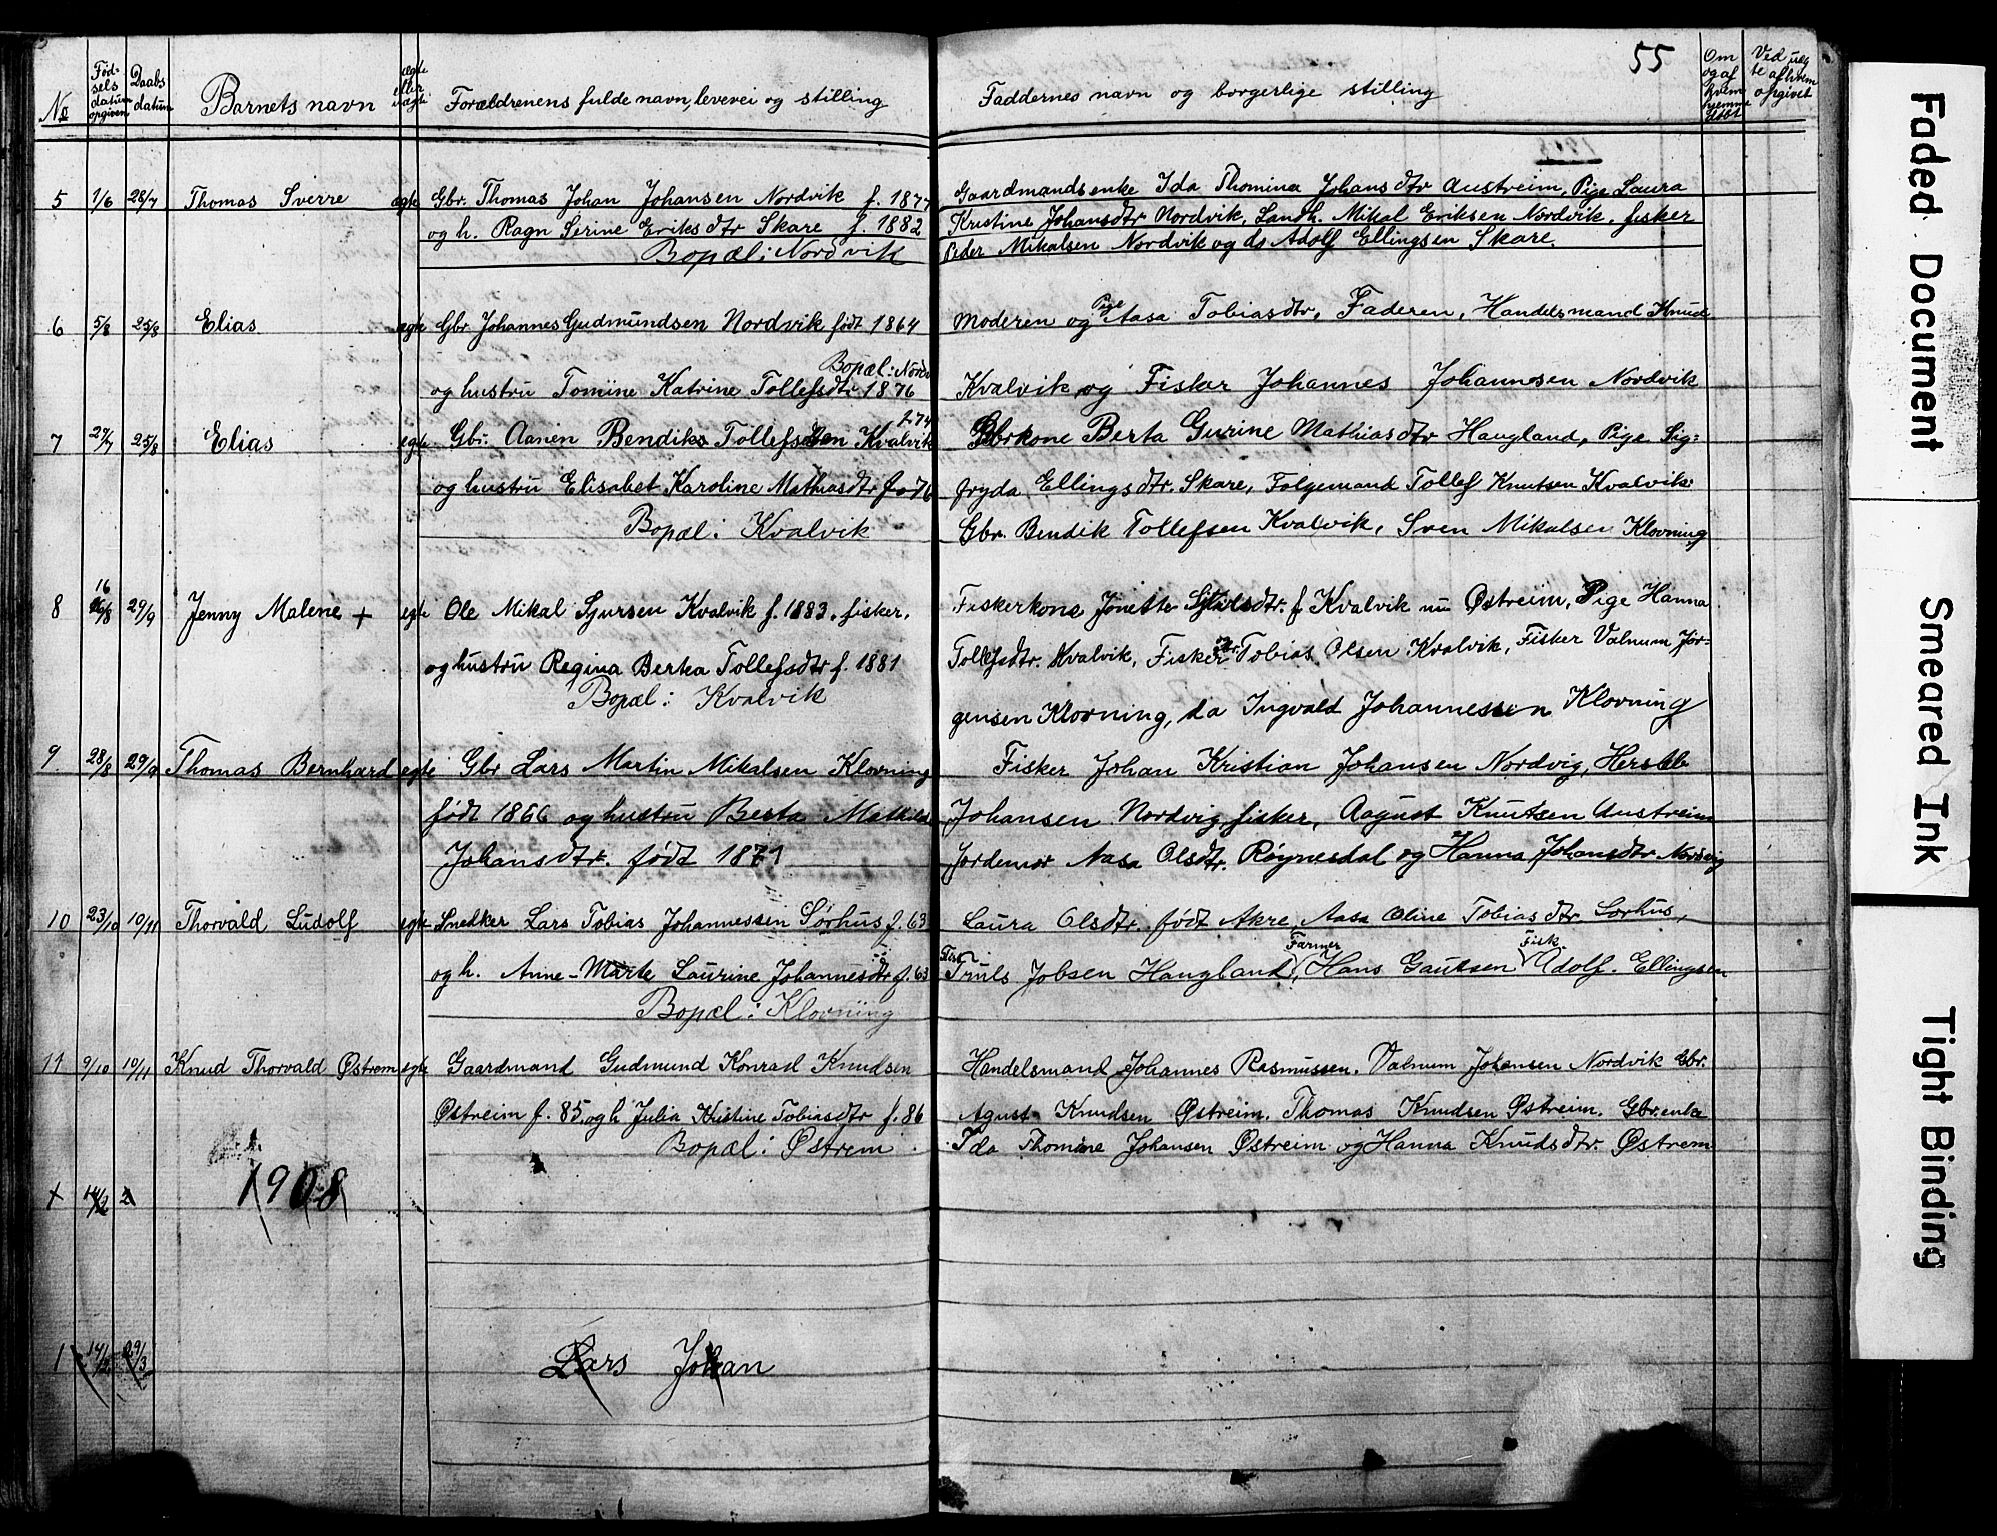 55
No
Fød-
sels
datum
opgiven
Daabs
datum
Barnets navn
ægte
eller
uægte
Forældrenens fulde navn, levevei og stilling
Faddernes navn og borgerlige stilling
Om
og af
hvem
hjemme
døbt
Ved uæg
te
opgivet
5 1/6 28/7 Thomas Sverre ægte Gbr. Thomas Johan Johansen Nordvik f. 1877
og h. Ragn Serine Eriksdtr Skare f. 1882
Bopæl: Nordvik
Gaardmandsenke Ida Thomina Johansdtr Austreim, Pige Laura
Kristine Johansdtr Nordvik, Landh. Mikal Eriksen Nordvik, fisker
Peder Mikalsen Nordvik og do Adolf Ellingsen Skare.
6 5/8 25/8 Elias ægte Gbr Johannes Gudmundsen Nordvik født 1864
Bopæl: Nordv
og hustru Tomine Katrine Tollefsdtr 1876
Moderen og Pige Aasa Tobiasdtr, Faderen, Handelsmand Knud
Kvalvik, og Fisker Johannes Johannesen Nordvik
7 27/7 25/8 Elias egte Gbr. Aanen Bendiks Tollefsen Kvalvik
f. 74
og hustru Elisabet Karoline Mathiasdtr fo 76
Bopæl: Kvalvik
Gbrkone Berta Gurine Mathiasdtr Haugland, Pige Sig-
fryda Ellingsdtr. Skare, Følgemand Tollef Knutsen Kvalvik
Gbr. Bendik Tollefsen Kvalvik, Sven Mikalsen Klovning
8 16/8 29/9 Jenny Malene + egte Ole Mikal Sjursen Kvalvik f. 1883. fisker,
og hustru Regina Berta Tollefsdtr f. 1881
Bopæl: Kvalvik
Fiskerkone Jonette f Kvalvik nu Østreim, Pige Hanna
Tollefsdtr. Kvalvik, Fisker Tobias Olsen Kvalvik, Fisker Valnum Jør-
gensen Klovning, do Ingvald Johannessen Klovning
9 28/8 29/9 Thomas Bernhard egte Gbr Lars Martin Mikalsen Klovning
født 1866 og hustru Berta Mathilde
Johansdtr. født 1871
Fisker Johan Kristian Johansen Nordvig, Hersleb
Johansen Nordvig fisker, Aagust Knutsen Austreim
Jordemor Aasa Olsdtr. Røynesdal og Hanna Johansdtr Nordvig
10 23/10 10/11 Thorvald Ludolf egte Snedker Lars Tobias Johannessen Sørhus f. 63
og h. Anne-Marte Laurine Johannesdtr f. 63
Bopæl: Klovning
Laura Olsdtr. født Akre, Aasa Oline Tobiasdtr Sørhus,
Truls Jobsen Haugland, Farmer Hans Gautsen Fisk. Adolf. Ellingsen
11 9/10 10/11 Knud Thorvald Østrem egte Gaardmand Gudmund Konrad Knudsen
Østreim f. 85, og h Julia Kristine Tobiasdtr f. 86
Bopæl: Østrem
Handelsmand Johannes Rasmussen, Valnum Johansen Nordvik Gbr.
Agust Knudsen Østreim. Thomas Knudsen Østreim. Gbr. enke
Ida Thomine Johansen Østreim og Hanna Knudsdtr. Østrem
1908
1 14/2 2
1 14/2 29/3 Lars Johan
Faded Document
Smeared Ink
Tight Binding